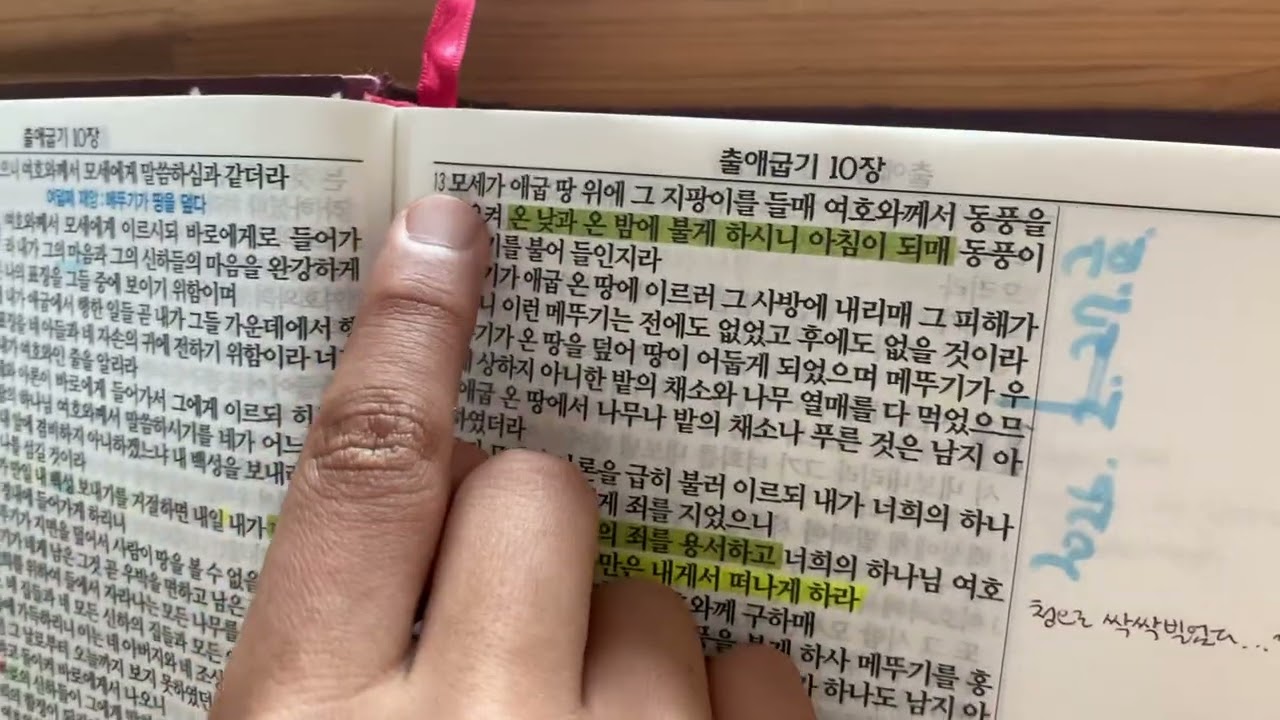 출애굽기 10장
여호와께서 모세에게 말씀하심과 같더라
여덟째 재앙 : 메뚜기가 땅을 덮다
여호와께서 모세에게 이르시되 바로에게로 들어가
라 내가 그의 마음과 그의 신하들의 마음을 완강하게
나의 표징을 그들 중에 보이기 위함이며
내가 애굽에서 행한 일들 곧 내가 그들 가운데에서
표징을 네 아들과 네 자손의 귀에 전하기 위함이라
내가 여호와인 줄을 알리라
와 아론이 바로에게 들어가서 그에게 이르되
의 하나님 여호와께서 말씀하시기를 네가 어느
내 앞에 겸비하지 아니하겠느냐 내 백성을 보내라
나를 섬길 것이라
가 만일 내 백성 보내기를 거절하면 내일 내가
경내에 들어가게 하리니
뚜기가 지면을 덮어서 사람이 땅을 볼 수 없을
가 네게 남은 그것 곧 우박을 면하고 남은
희를 위하여 들에서 자라나는 모든 나무를
네 집들과 네 모든 신하의 집들과 모든
에 가득하리니 이는 네 아버지와 네 조상
그 날로부터 오늘까지 보지 못하였던
고 돌이켜 바로에게서 나오니
의 신하들이 그에게 말하되
출애굽기 10장
13 모세가 애굽 땅 위에 그 지팡이를 들매 여호와께서 동풍을
켜 온 낮과 온 밤에 불게 하시니 아침이 되매 동풍이
기를 불어 들인지라
기가 애굽 온 땅에 이르러 그 사방에 내리매 그 피해가
니 이런 메뚜기는 전에도 없었고 후에도 없을 것이라
기가 온 땅을 덮어 땅이 어둡게 되었으며 메뚜기가 우
상하지 아니한 밭의 채소와 나무 열매를 다 먹었으므
애굽 온 땅에서 나무나 밭의 채소나 푸른 것은 남지 아
하였더라
론을 급히 불러 이르되 내가 너희의 하나
게 죄를 지었으니
의 죄를 용서하고 너희의 하나님 여호
만은 내게서 떠나게 하라
와께 구하매
풍을 불게 하사 메뚜기를 홍
가 하나도 남지 아
참으로 싹싹 빌었다...